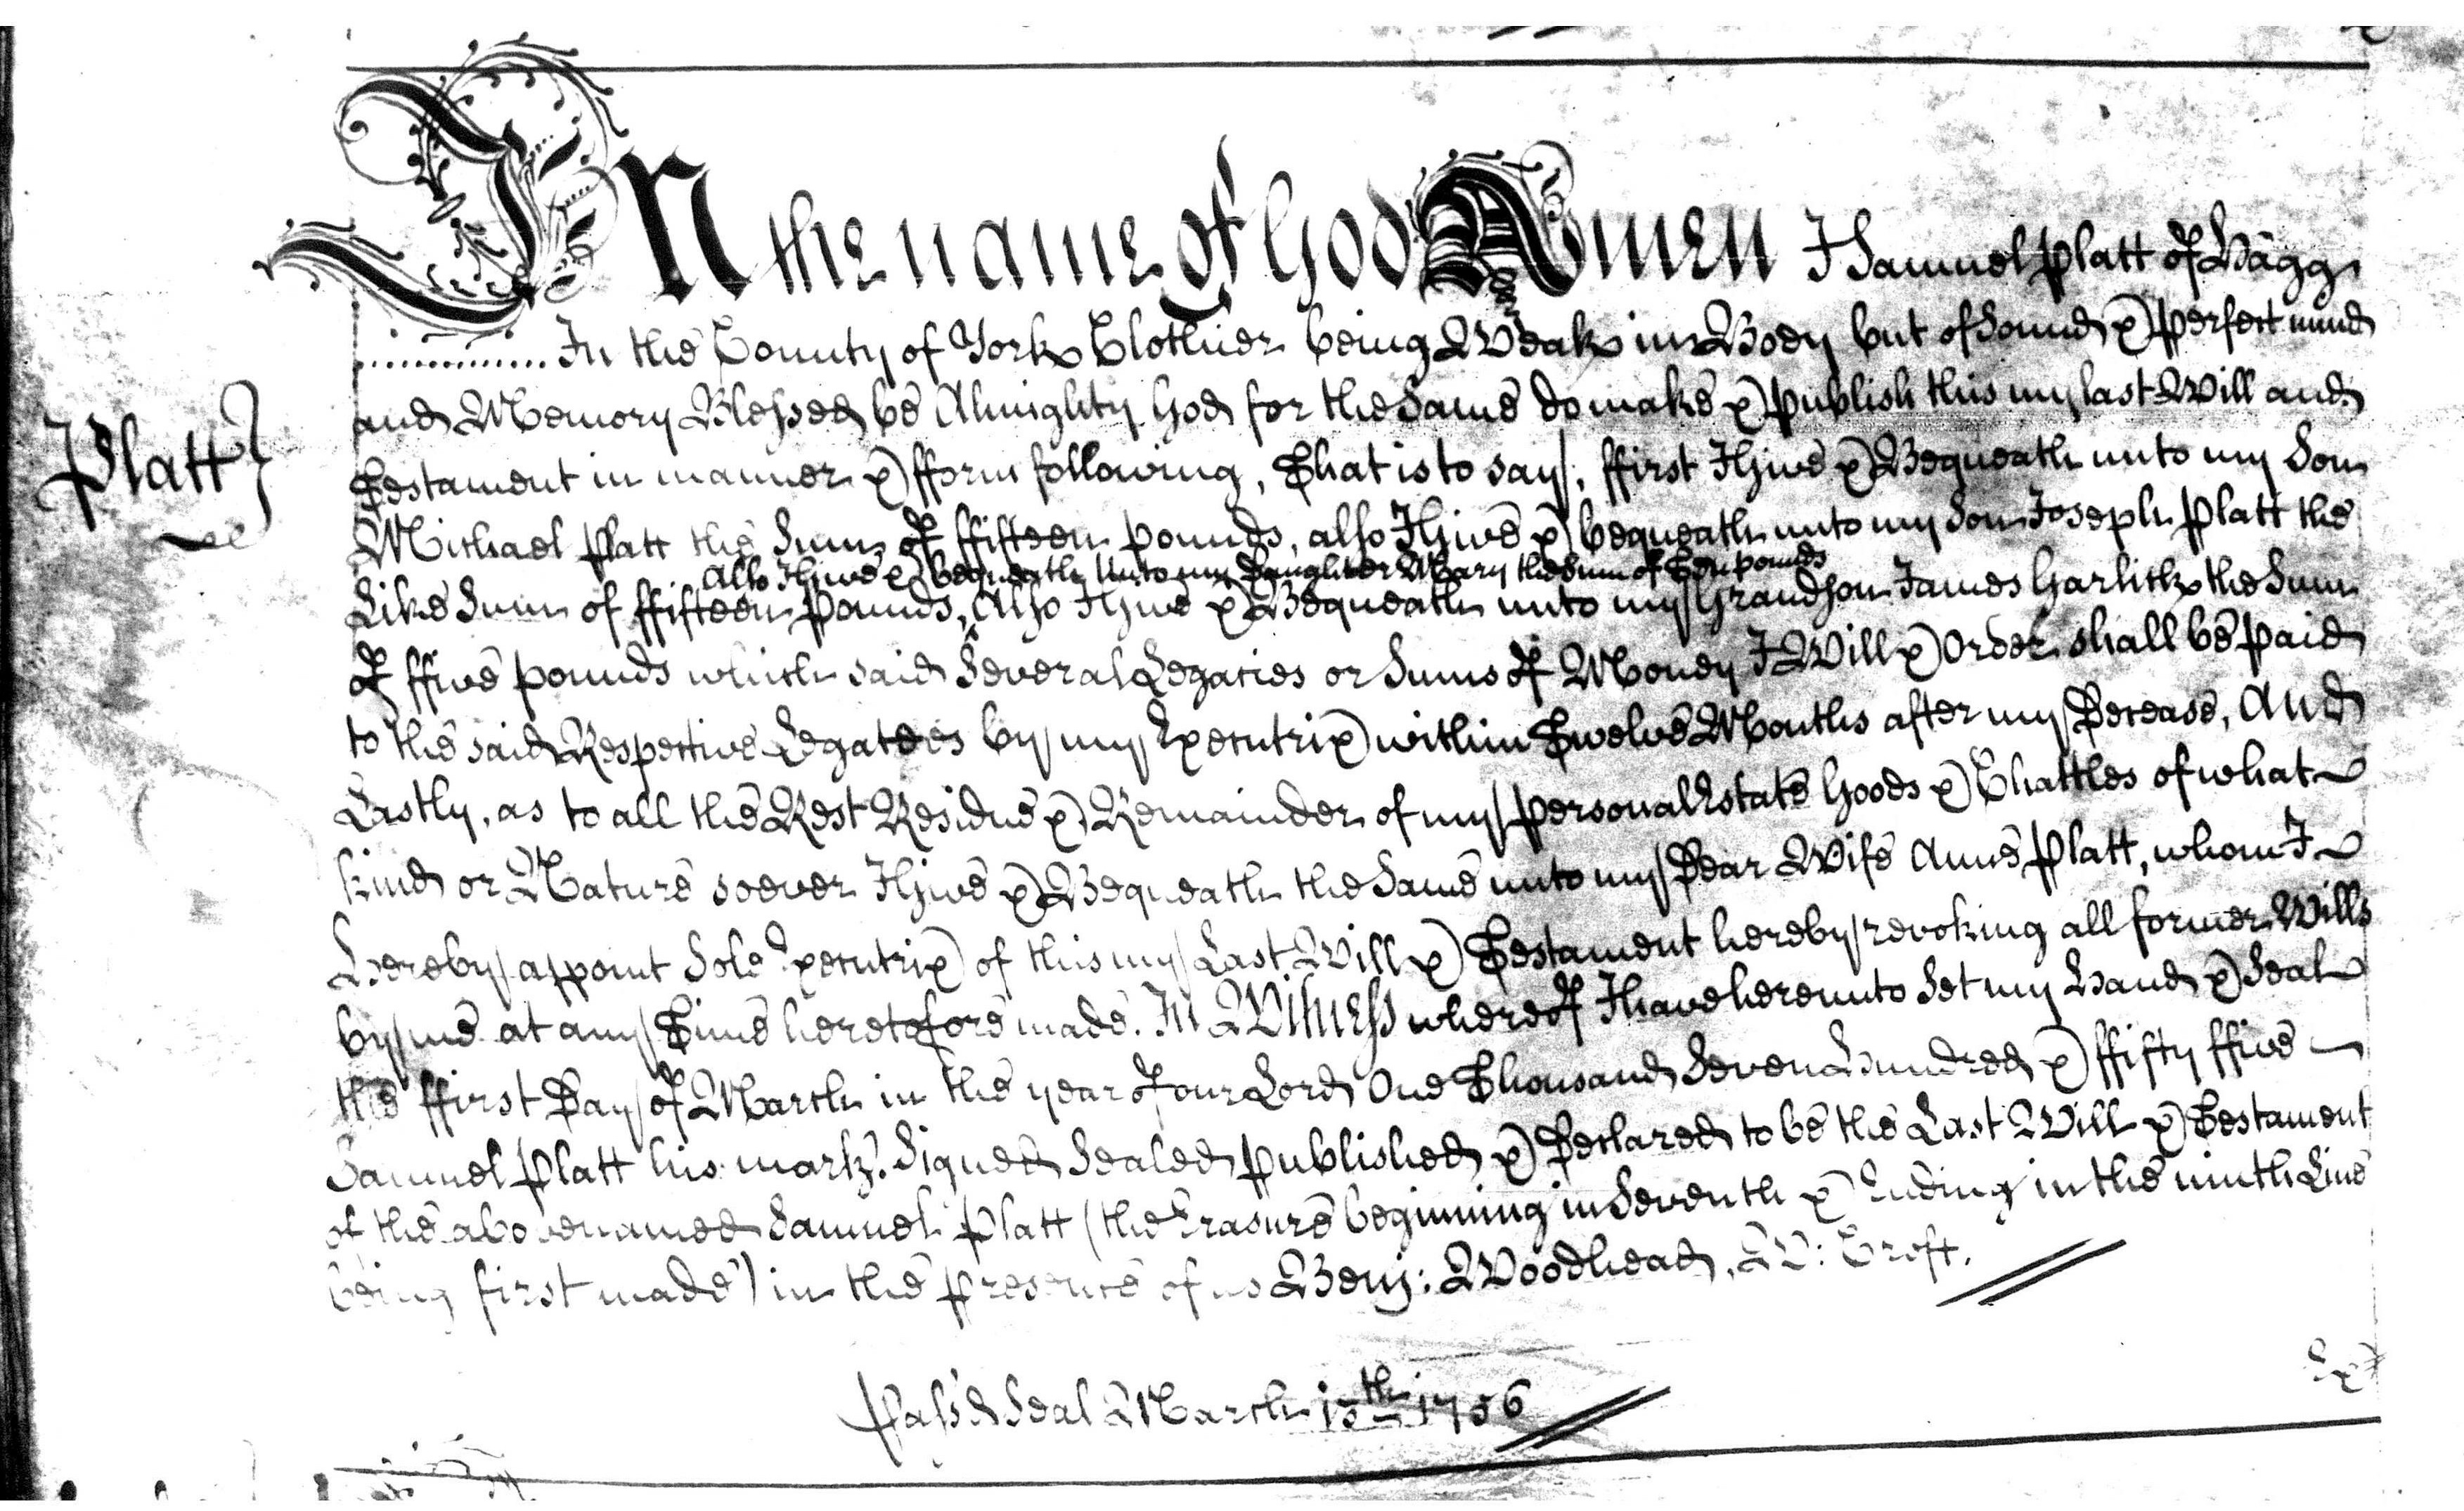 In the name of God Amen I Samuel Platt of Haggs
In the County of York Clothier being Weak in Body but of Sound & perfect mind
and Memory Blessed be Almighty God for the Same do make & publish this my last Will and
Platt}
Testament in manner & fform following, That is to say, ffirst I Give & Bequeath unto my Son
Michael Platt the Sum of ffifteen pounds, also I Give & bequeath unto my Son Joseph Platt the
Also I Give & bequeath Unto my Daughter Mary the Sum of Ten pounds
Like Sum of ffifteen pounds, Also I Give & Bequeath unto my Grandson James Garlick the Sum
of ffive pounds which said Several Legacies or Sums of Money I Will & Order shall be paid
to the said Respective Legatees by my Executrix within Twelve Months after my Decease, And
Lastly, as to all the Rest Residue & Remainder of my personal Estate Goods & Chattles of what
kind or Nature soever I Give & Bequeath the Same unto my Dear Wife Anne Platt, whom I
Hereby appoint Sole Executrix of this my Last Will & Testament hereby revoking all former Wills
by me at any Time heretofore made. In Witness whereof I have hereunto Set my Hand & Seal
the ffirst Day of March in the year of our Lord One Thousand Seven Hundred & ffifty ffive
Samuel Platt his mark. Signed Sealed published & Declared to be the Last Will & Testament
of the abovenamed Samuel Platt (the Erasure beginning in Seventh & Ending in the ninth Line
being first made) in the presence of us Benj: Woodhead, W: Croft.
Pass'd Seal March 15th 1756
Ex